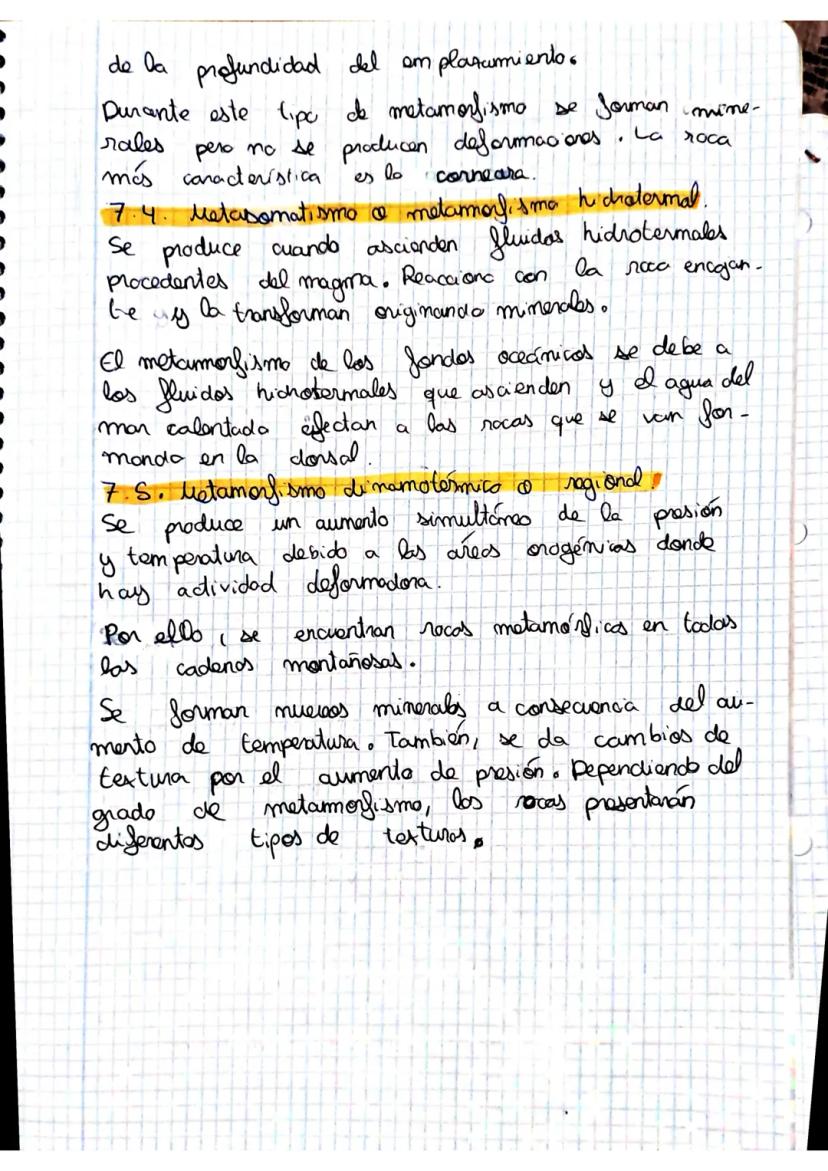 de la profundidad del emplazamiento.
Durante este tipo de metamorfismo se forman mine-
rales pero no se producen deformaciones. La roca
más característica es la corneana.
7.4. Metasomatismo o metamorfismo hidrotermal.
Se produce cuando ascienden fluidos hidrotermales
procedentes del magma. Reacciona con la roca encajan-
te y la transforman originando minerales.
El metamorfismo de los fondos oceánicos se debe a
los fluidos hidrotermales que ascienden y el agua del
mar calentada afectan a las rocas que se van for-
mando en la dorsal.
7.5. Metamorfismo dinamotérmico o regional.
Se produce un aumento simultáneo de la presión
y temperatura debido a las áreas orogénicas donde
hay actividad deformadora.
Por ello, se encuentran rocas metamórficas en todas
las cadenas montañosas.
Se forman nuevos minerales a consecuencia del au-
mento de temperatura. También, se da cambios de
textura por el aumento de presión. Dependiendo del
grado de metamorfismo, las rocas presentarán
diferentes tipos de texturas.